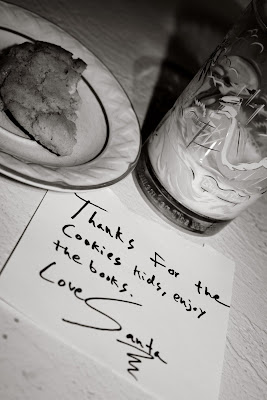 Thanks For the
Cookies kids, enjoy
the books.
Love Santa